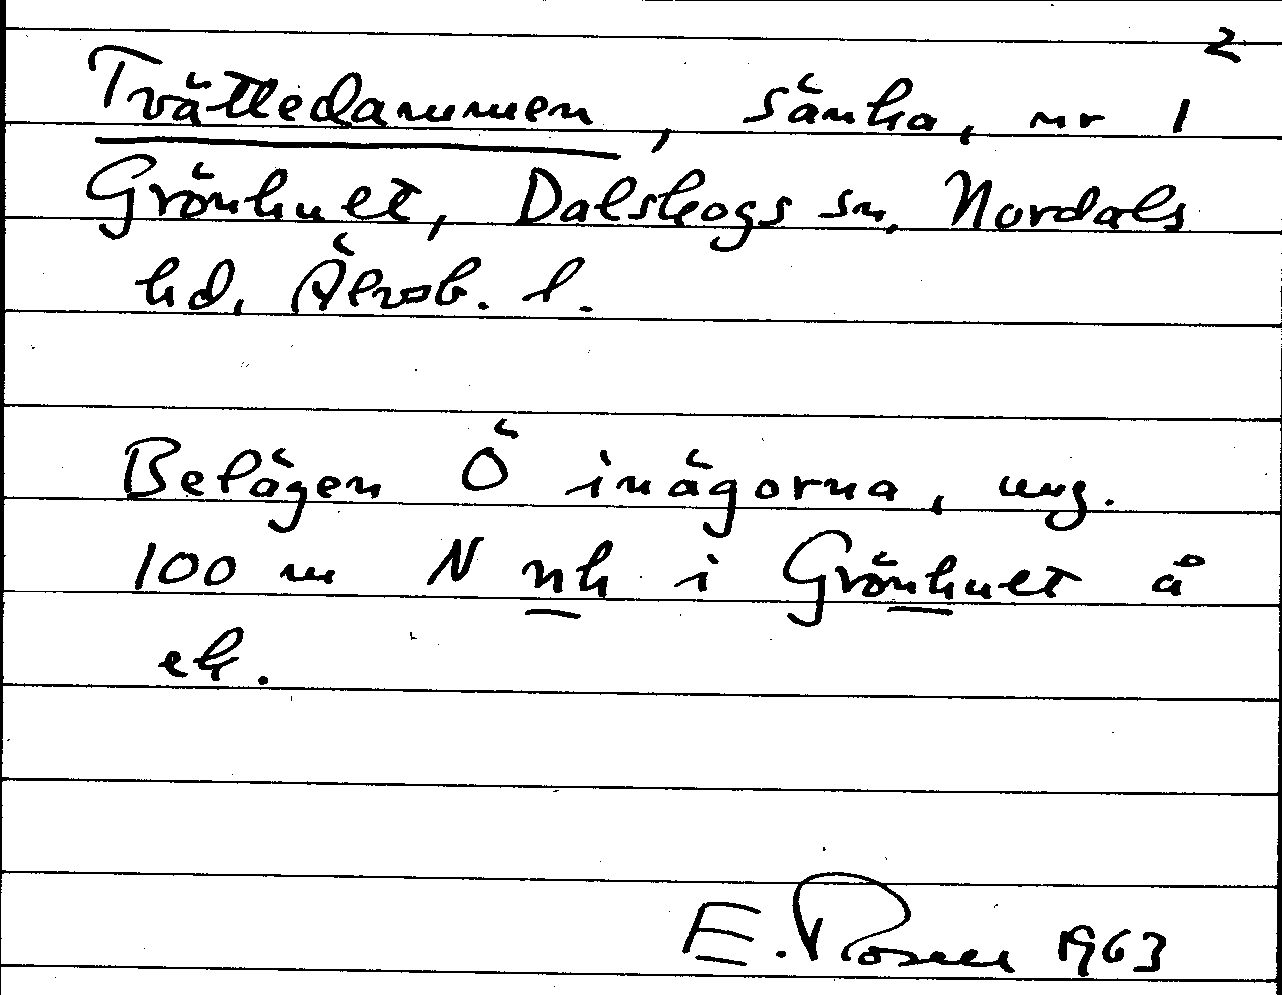 2
Tvättedammen, sänka, nr 1
Grönhult, Dalskogs sn, Nordals
hd, Älvsb. l.
Belägen Ö inägorna, ung.
100 m N nh i Grönhult å
ek.
E. 1963